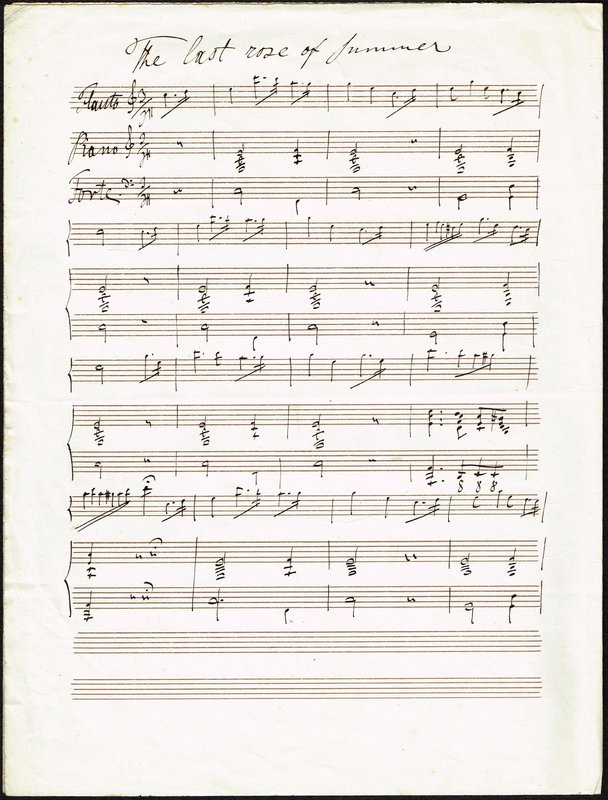 The last rose of Summer
Flauto
Piano
Forte.
8 8 8